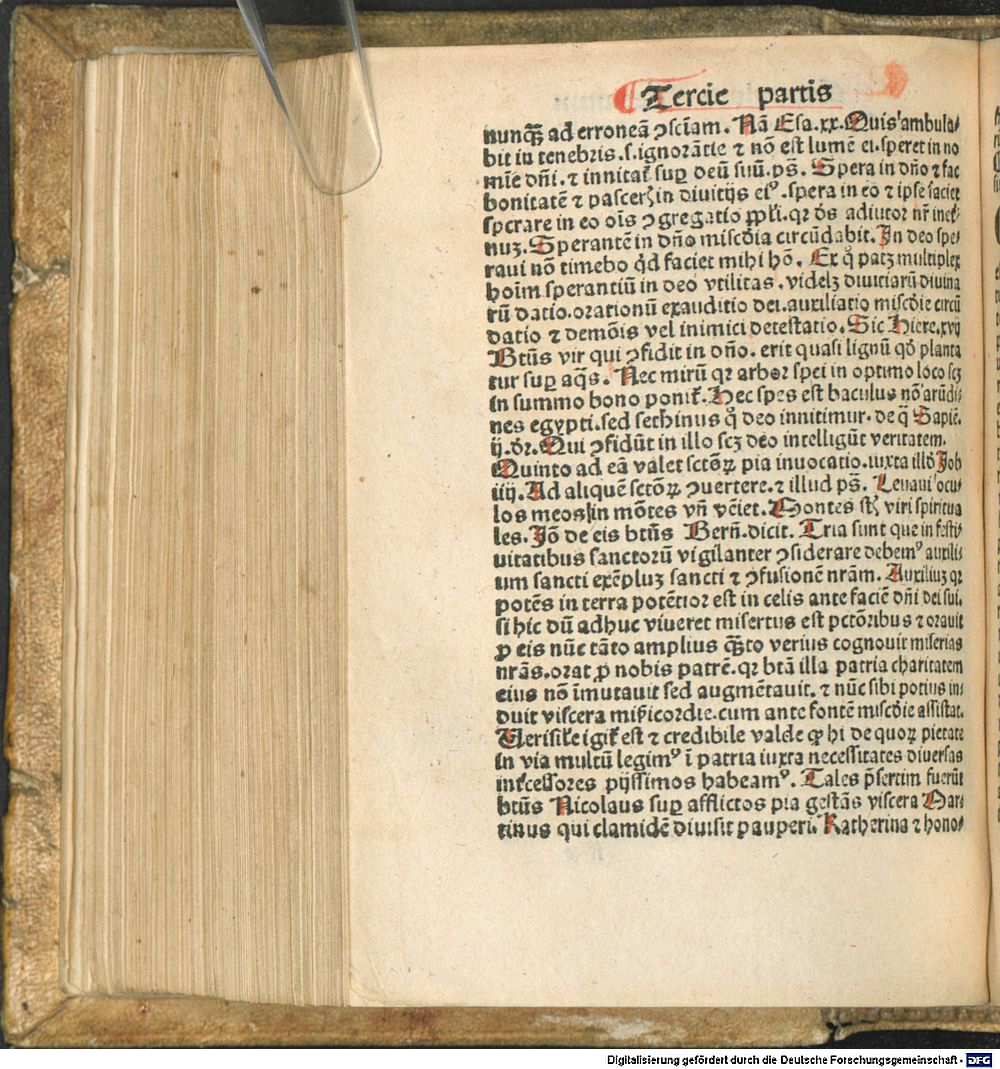 Tercie partis
nunqꝫ ad erroneā ꝯsciam. Nā Esa. xx. Quis ambula⸗
bit in tenebris. s. ignorātie ⁊ nō est lumē ei. speret in no
mīe dn̄i. ⁊ innitat᷑ sup̱ deū suū. ps̄. Spera in dn̄o ⁊ fac
bonitatē ⁊ pasceris in diuitijs eiꝰ. spera in eo ⁊ ipse faciet
sperare in eo oīs ꝯgregatio pp̄li. qꝛ ds̄ adiutor nr̄ ineter⸗
nuꝫ. Sperantē in dn̄o misc̄dia circūdabit. In deo spe⸗
raui nō timebo qd̄ faciet mihi hō. Ex quo patꝫ multiplex
hoīm sperantiū in deo vtilitas. videlꝫ diuitiarū diuina
rū datio. orationū exauditio dei. auxiliatio misc̄die circū
datio ⁊ demōis vel inimici detestatio. Sic Hiere. xvij
Btūs vir qui ꝯfidit in dn̄o. erit quasi lignū qd̄ planta
tur sup̱ aq̄s. Nec mirū qꝛ arbor spei in optimo loco scꝫ
in summo bono ponit᷑. Hec spes est baculus nō arūdi⸗
nes egypti. sed sethinus quo deo innitimur. de q̄ Sapiē.
iij. dr̄. Qui ꝯfidūt in illo scꝫ deo intelligūt veritatem.
Quinto ad eā valet sctōꝝ pia inuocatio. iuxta illd̄ Job
iiij. Ad aliquē sctōꝝ ꝯuertere. ⁊ illud ps̄. Leuaui ocu⸗
los meos in mōtes vn̄ vēiet. Montes st̄ viri spiritua
les. Jō de eis btūs Bern̄. dicit. Tria sunt que in festi⸗
uitatibus sanctorū vigilanter ꝯsiderare debemꝰ auxili⸗
um sancti exēpluꝫ sancti ⁊ ꝯfusionē nrām. Auxiliuꝫ qꝛ
potēs in terra potētior est in celis ante faciē dn̄i dei sui.
si hic dū adhuc viueret misertus est pctōribus ⁊ orauit
ꝓ eis nūc tāto amplius qꝫto verius cognouit miserias
nrās. orat ꝓ nobis patrē. qꝛ btā illa patria charitatem
eius nō īmutauit sed augmētauit. ⁊ nūc sibi potius in⸗
duit viscera mīsericordie. cum ante fontē misc̄die assistat.
Uerisil̄e igit᷑ est ⁊ credibile valde ꝙ hi de quoꝝ pietate
in via multū legimꝰ ī patria iuxta necessitates diuersas
int̄cessores pijssimos habeamꝰ. Tales p̄sertim fuerūt
btūs Nicolaus sup̱ afflictos pia gestās viscera Mar⸗
tinus qui clamidē diuisit pauperi. Katherina ⁊ hono⸗
Digitalisierung gefördert durch die Deutsche Forschungsgemeinschaft - DFG